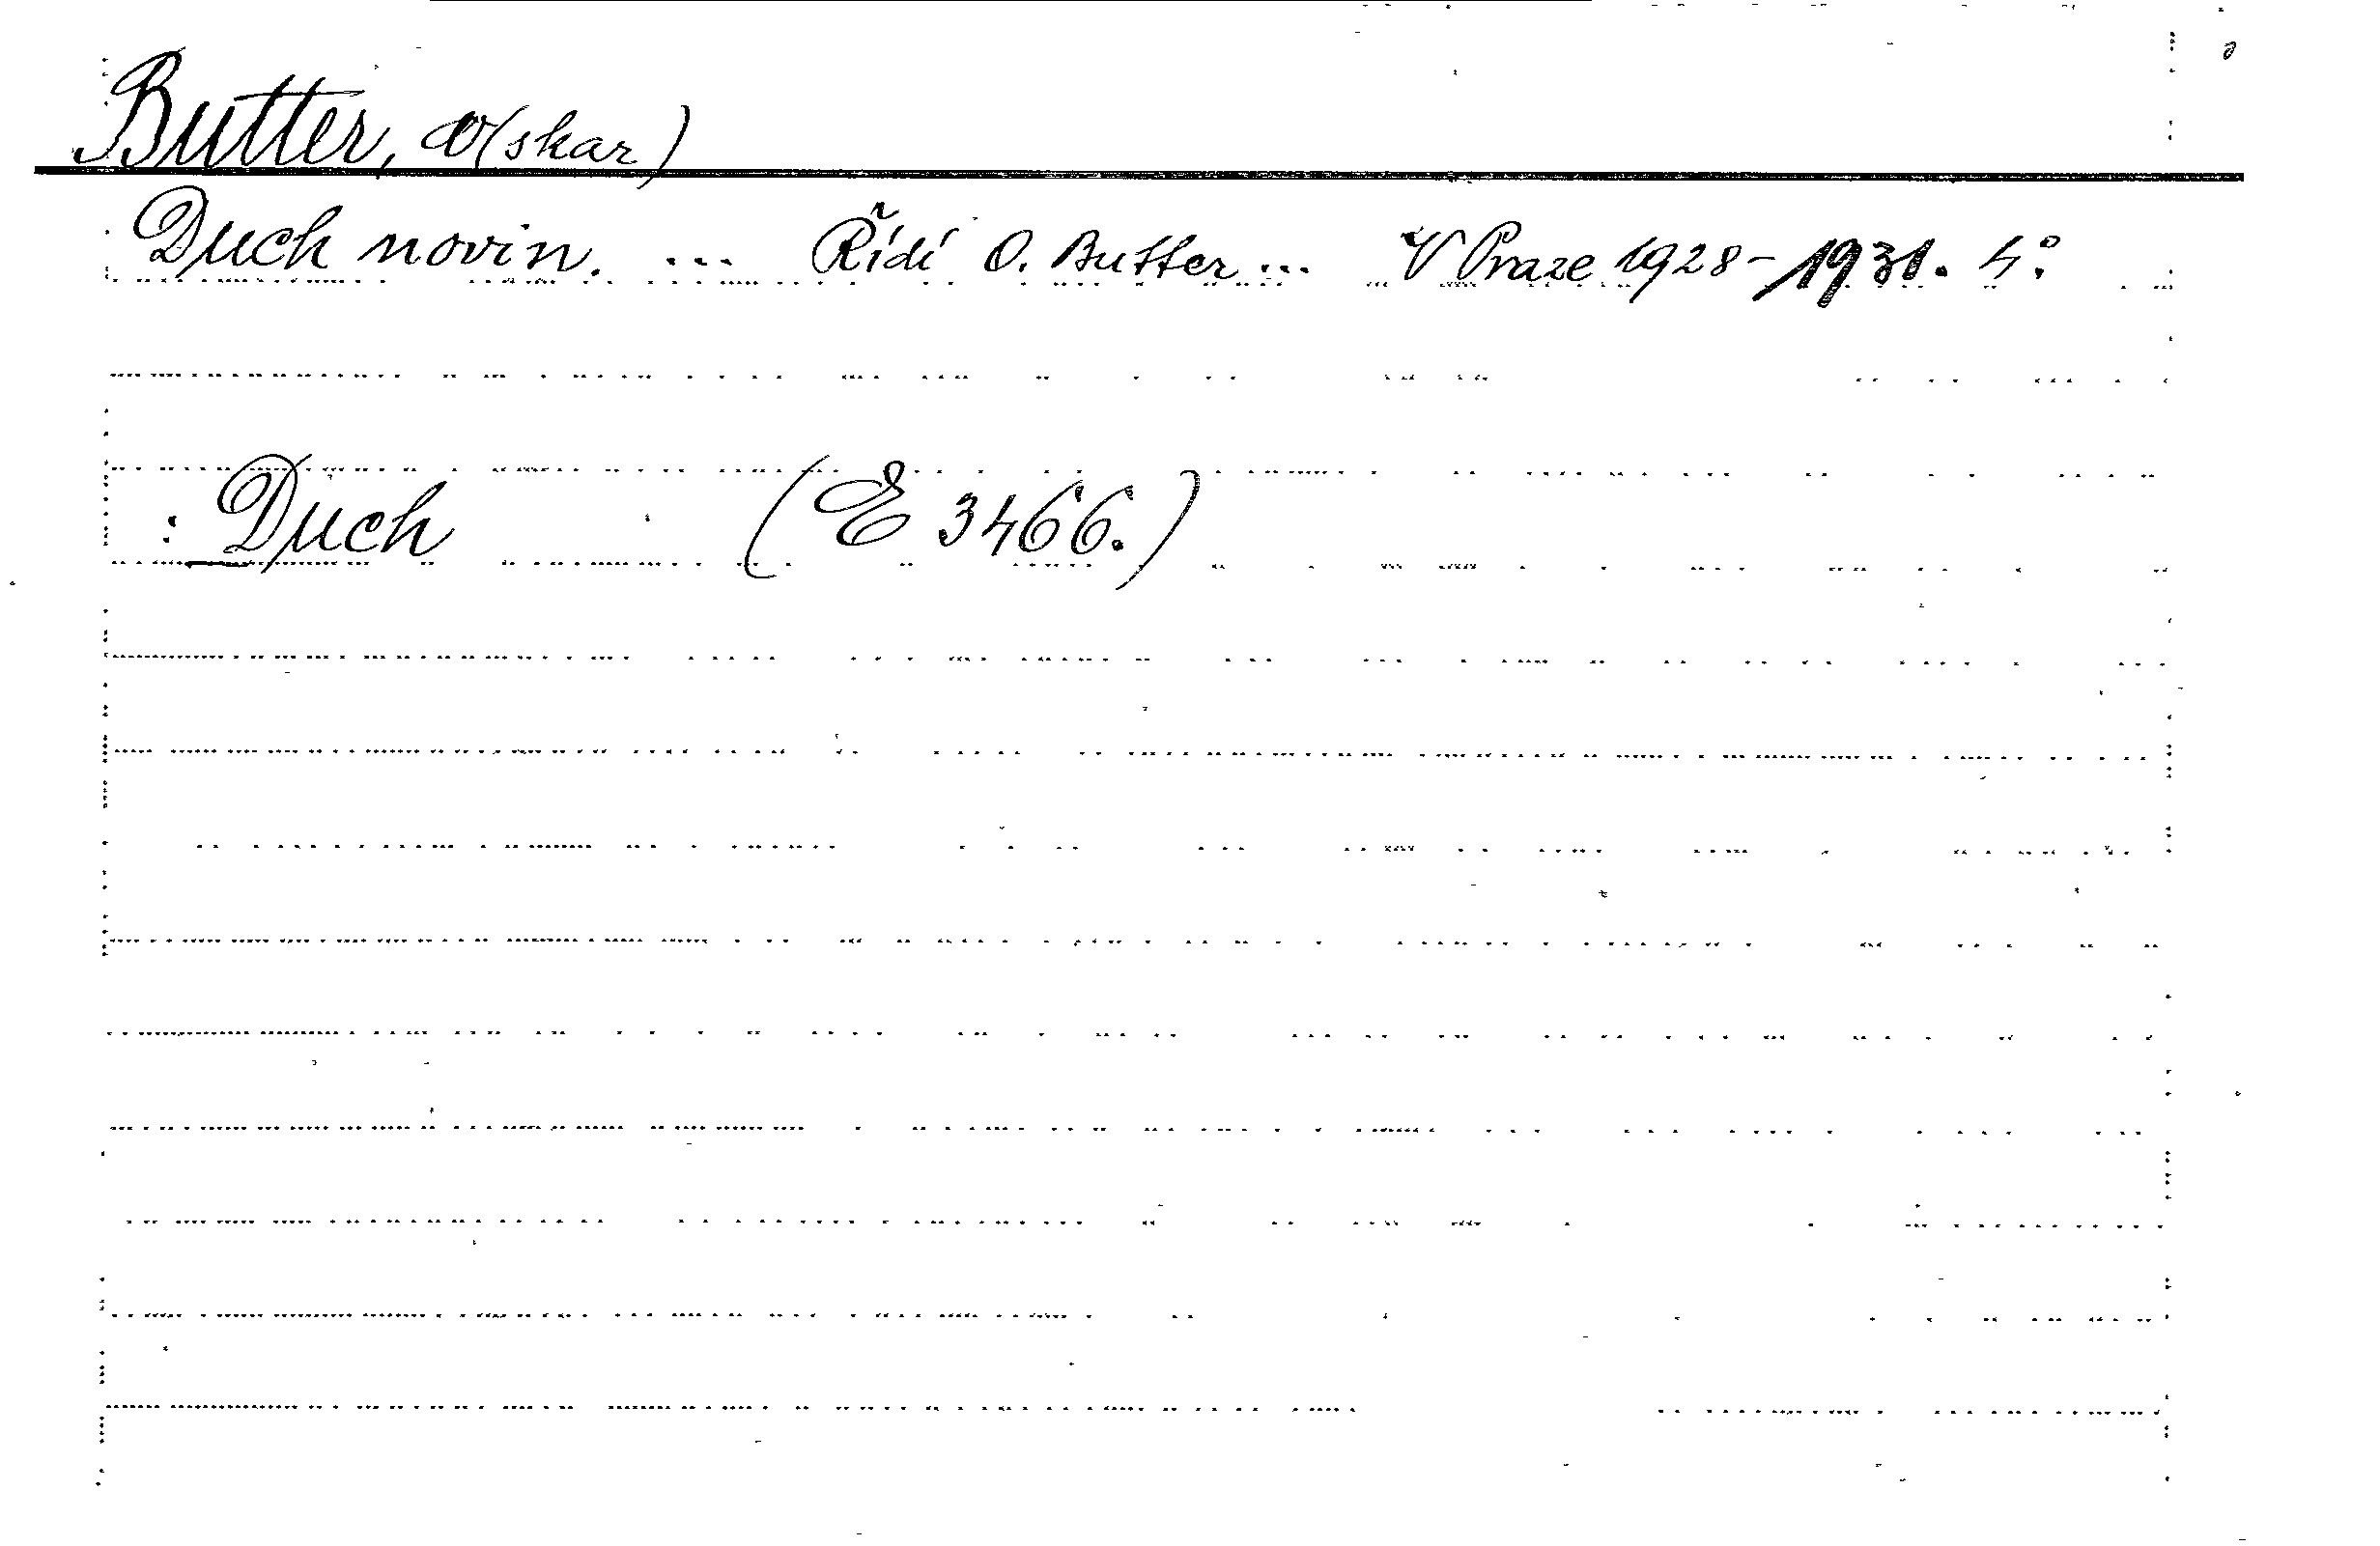 Butter, O(skar)
Duch novin. ... Řídí O. Butter ... V Praze 1928-1931. 4°.
: Duch (E 3466.)